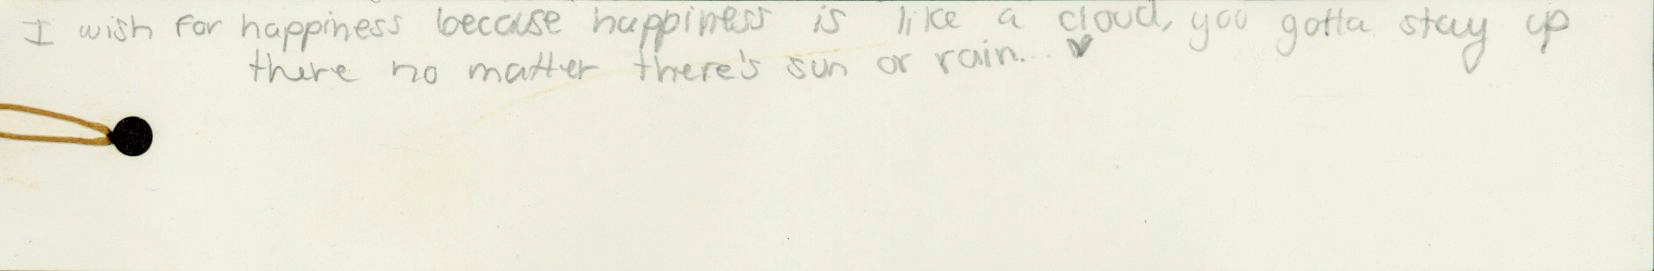 I wish for happiness because happiness is like a cloud, you gotta stay up
there no matter there's sun or rain... ♥